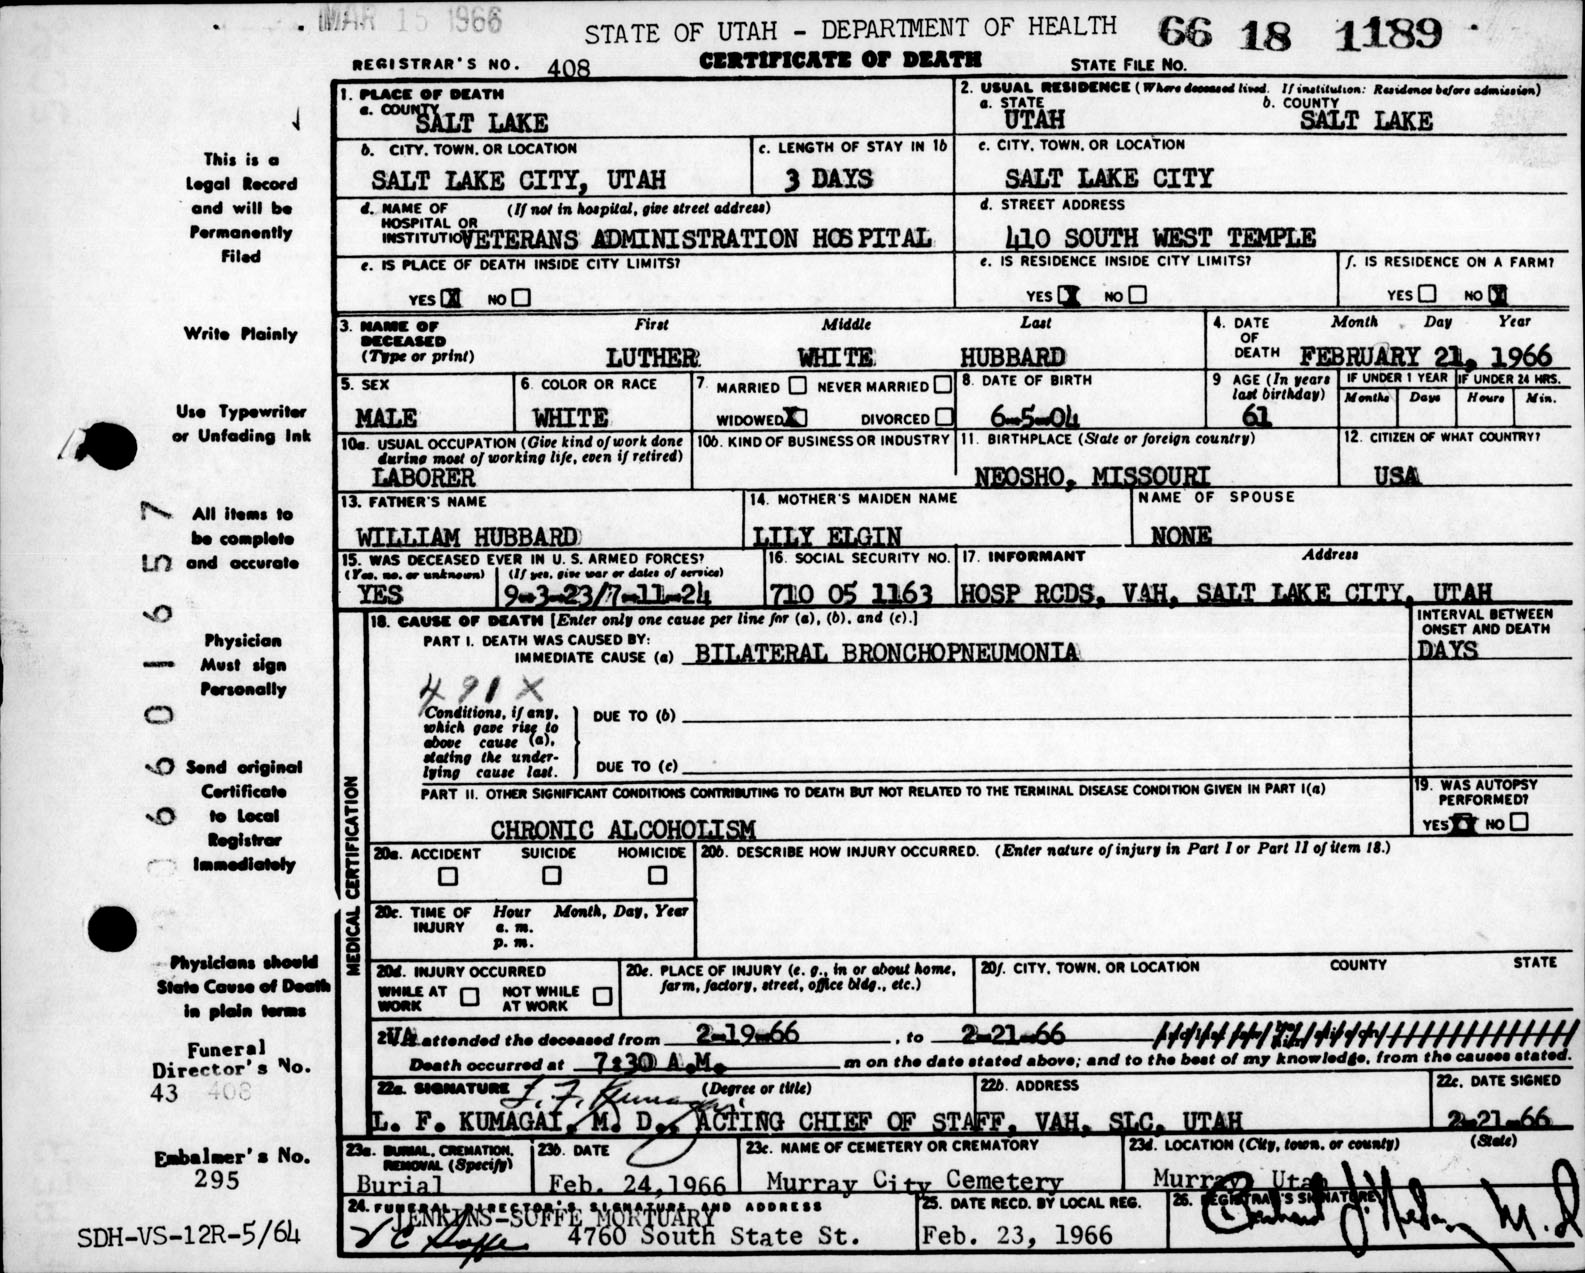 MAR 15 1966
STATE OF UTAH - DEPARTMENT OF HEALTH 66 18 1189
REGISTRAR'S NO. 408 CERTIFICATE OF DEATH STATE FILE NO.
This is a
Legal Record
and will be
Permanently
Filed
Write Plainly
Use Typewriter
or Unfading Ink
All items to
be complete
and accurate
Physician
Must sign
Personally
Send original
Certificate
to Local
Registrar
Immediately
Physicians should
State Cause of Death
in plain terms
Funeral
Director's No.
43 408
Embalmer's No.
295
SDH-VS-12R-5/64
6601657
1. PLACE OF DEATH
a. COUNTY
SALT LAKE
2. USUAL RESIDENCE (Where deceased lived. If institution: Residence before admission)
a. STATE b. COUNTY
UTAH SALT LAKE
b. CITY, TOWN, OR LOCATION c. LENGTH OF STAY IN 1b
SALT LAKE CITY, UTAH 3 DAYS
c. CITY, TOWN, OR LOCATION
SALT LAKE CITY
d. NAME OF (If not in hospital, give street address)
HOSPITAL OR
INSTITUTIO VETERANS ADMINISTRATION HOSPITAL
d. STREET ADDRESS
410 SOUTH WEST TEMPLE
e. IS PLACE OF DEATH INSIDE CITY LIMITS?
YES X NO
e. IS RESIDENCE INSIDE CITY LIMITS? f. IS RESIDENCE ON A FARM?
YES X NO YES NO X
3. NAME OF First Middle Last
DECEASED
(Type or print) LUTHER WHITE HUBBARD
4. DATE Month Day Year
OF
DEATH FEBRUARY 21, 1966
5. SEX 6. COLOR OR RACE 7. MARRIED NEVER MARRIED 8. DATE OF BIRTH 9 AGE (In years IF UNDER 1 YEAR IF UNDER 24 HRS.
last birthday) Months Days Hours Min.
MALE WHITE WIDOWED X DIVORCED 6-5-04 61
10a. USUAL OCCUPATION (Give kind of work done 10b. KIND OF BUSINESS OR INDUSTRY 11. BIRTHPLACE (State or foreign country) 12. CITIZEN OF WHAT COUNTRY?
during most of working life, even if retired)
LABORER NEOSHO, MISSOURI USA
13. FATHER'S NAME 14. MOTHER'S MAIDEN NAME NAME OF SPOUSE
WILLIAM HUBBARD LILY ELGIN NONE
15. WAS DECEASED EVER IN U. S. ARMED FORCES? 16. SOCIAL SECURITY NO. 17. INFORMANT Address
(Yes, no, or unknown) (If yes, give war or dates of service)
YES 9-3-23/7-11-24 710 05 1163 HOSP RCDS, VAH, SALT LAKE CITY, UTAH
MEDICAL CERTIFICATION
18. CAUSE OF DEATH [Enter only one cause per line for (a), (b), and (c).] INTERVAL BETWEEN
ONSET AND DEATH
PART I. DEATH WAS CAUSED BY:
IMMEDIATE CAUSE (a) BILATERAL BRONCHOPNEUMONIA DAYS
491X
Conditions, if any,
which gave rise to
above cause (a),
stating the under-
lying cause last.
DUE TO (b)
DUE TO (c)
PART II. OTHER SIGNIFICANT CONDITIONS CONTRIBUTING TO DEATH BUT NOT RELATED TO THE TERMINAL DISEASE CONDITION GIVEN IN PART I(a)
CHRONIC ALCOHOLISM
19. WAS AUTOPSY
PERFORMED?
YES X NO
20a. ACCIDENT SUICIDE HOMICIDE 20b. DESCRIBE HOW INJURY OCCURRED. (Enter nature of injury in Part I or Part II of item 18.)
20c. TIME OF Hour Month, Day, Year
INJURY a. m.
p. m.
20d. INJURY OCCURRED 20e. PLACE OF INJURY (e. g., in or about home, 20f. CITY, TOWN, OR LOCATION COUNTY STATE
WHILE AT NOT WHILE farm, factory, street, office bldg., etc.)
WORK AT WORK
2 VA attended the deceased from 2-19-66, to 2-21-66
Death occurred at 7:30 A.M. m on the date stated above; and to the best of my knowledge, from the causes stated.
22a. SIGNATURE L. F. Kumagai (Degree or title) 22b. ADDRESS 22c. DATE SIGNED
L. F. KUMAGAI, M. D., ACTING CHIEF OF STAFF, VAH, SLC, UTAH 2-21-66
23a. BURIAL, CREMATION, 23b. DATE 23c. NAME OF CEMETERY OR CREMATORY 23d. LOCATION (City, town, or county) (State)
REMOVAL (Specify)
Burial Feb. 24,1966 Murray City Cemetery Murray Utah
24. FUNERAL DIRECTOR'S SIGNATURE AND ADDRESS 25. DATE RECD. BY LOCAL REG. 26. REGISTRAR'S SIGNATURE
JENKINS-SOFFE MORTUARY
4760 South State St. Feb. 23, 1966 M.D